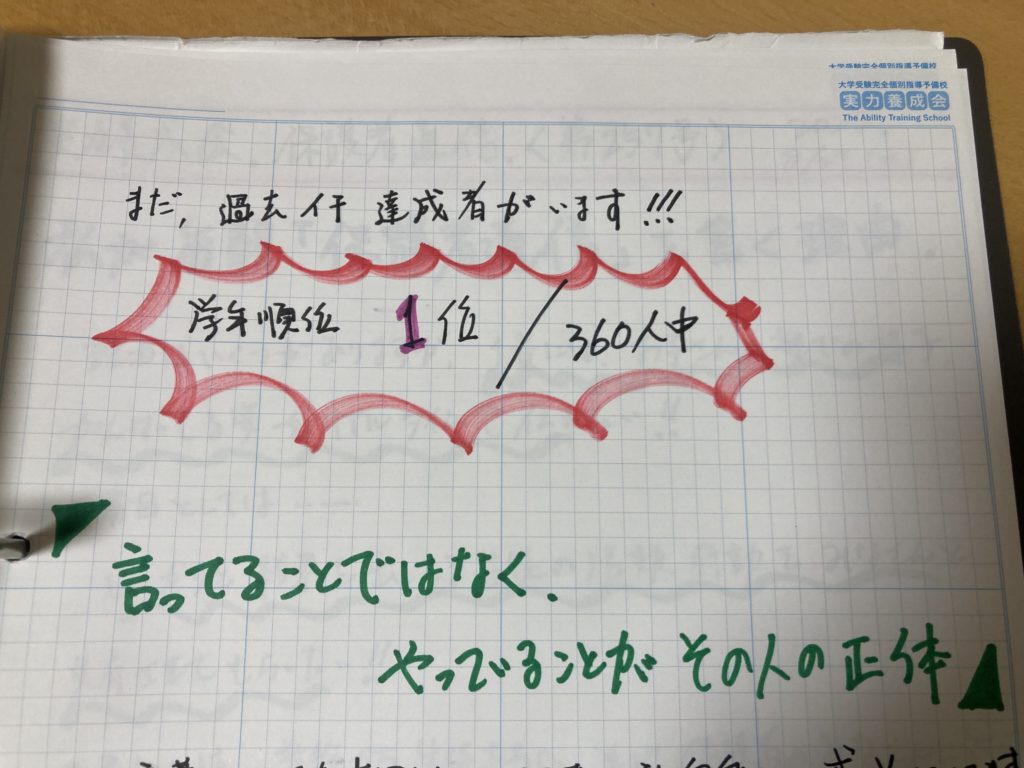 大学受験完全個別指導予備校
大学受験完全個別指導予備校
実力養成会
The Ability Training School
まだ, 過去イチ 達成者がいます!!!
学年順位 1位 / 360人中
言ってることではなく.
やってることが その人の正体